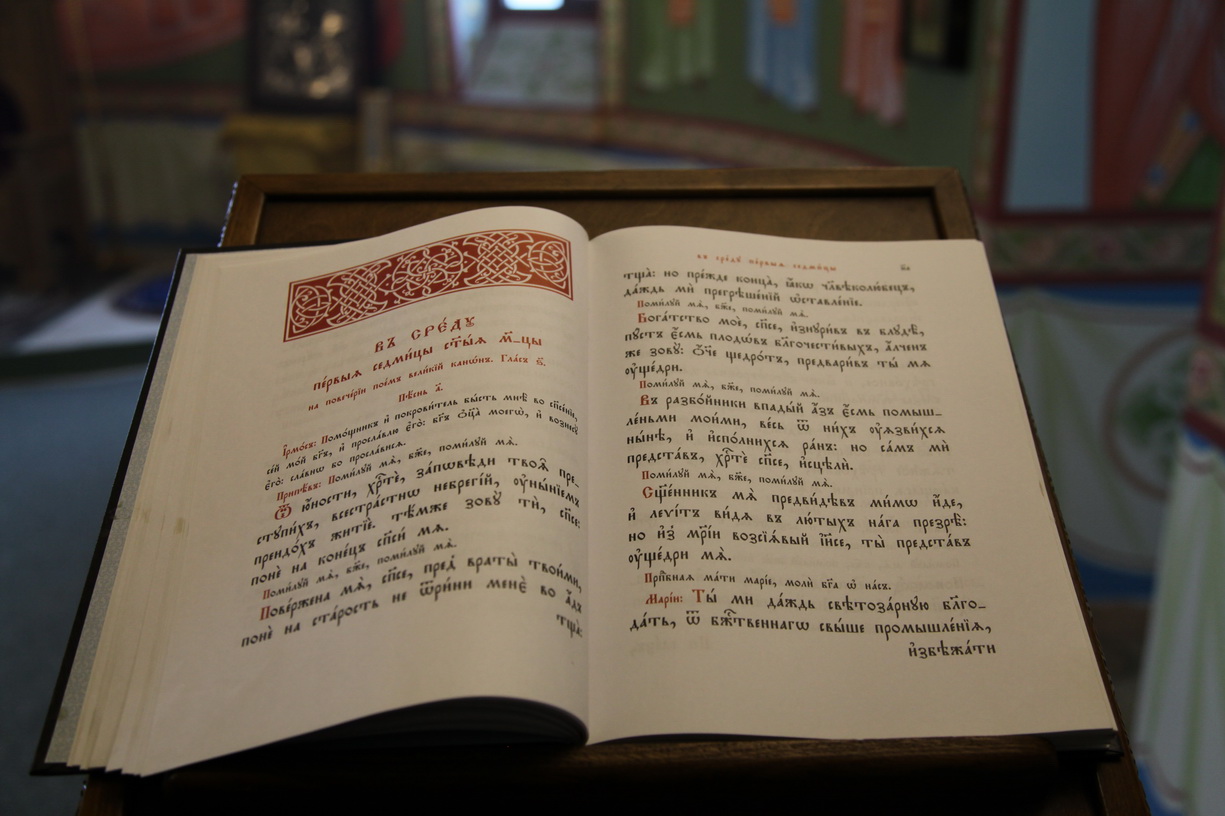 въ сре́дꙋ
пе́рвыѧ седми́цы ст҃ы́ѧ м҃_цы
на повече́рїи пое́мъ вели́кїй канѡ́нъ. Гла́съ ѕ҃.
Пѣ́снь а҃.
І҆рмо́съ: Помо́щникъ и҆ покрови́тель бы́сть мнѣ̀ во спⷭ҇е́нїе,
се́й мо́й бг҃ъ, и҆ просла́влю є҆го̀: бг҃ъ ѻ҆ц҃а̀ моегѡ̀, и҆ вознесꙋ̀
є҆го̀: сла́внѡ бо просла́висѧ.
Припѣ́въ: Поми́лꙋй мѧ̀, бж҃е, поми́лꙋй мѧ̀.
Ѿ ю҆́ности, хрⷭ҇тѐ, за́пѡвѣди твоѧ̑ пре_
стꙋпи́хъ, всестра́стнѡ небрегі́й, ᲂу҆ны́нїемъ
преидо́хъ житїѐ. тѣ́мже зовꙋ́ ти, сп҃се:
понѐ на коне́цъ сп҃си́ мѧ.
Поми́лꙋй мѧ̀, бж҃е, поми́лꙋй мѧ̀.
Пове́ржена мѧ̀, сп҃се, пред̾ враты̀ твои́ми,
понѐ на ста́рость не ѿри́ни менѐ во а҆́дъ
тща̀:
въ сре́дꙋ пе́рвыѧ седми́цы
тща̀: но пре́жде конца̀, ꙗ҆́кѡ чл҃вѣколю́бецъ,
да́ждь мѝ прегрѣше́нїй ѡ҆ставле́нїе.
Поми́лꙋй мѧ̀, бж҃е, поми́лꙋй мѧ̀.
Бога́тство моѐ, сп҃се, и҆знꙋри́въ въ блꙋдѣ̀,
пꙋ́стъ є҆́смь плодѡ́въ бл҃гочести́выхъ, а҆́лченъ
же зовꙋ̀: ѻ҆́ч҃е щедро́тъ, предвари́въ ты́ мѧ
ᲂу҆ще́дри.
Поми́лꙋй мѧ̀, бж҃е, поми́лꙋй мѧ̀.
Въ разбо́йники впады́й а҆́зъ є҆́смь помыш_
ле́ньми мои́ми, ве́сь ѿ ни́хъ ᲂу҆ѧзви́хсѧ
ны́нѣ, и҆ и҆спо́лнихсѧ ра́нъ: но са́мъ мѝ
предста́въ, хрⷭ҇тѐ сп҃се, и҆сцѣлѝ.
Поми́лꙋй мѧ̀, бж҃е, поми́лꙋй мѧ̀.
Сщ҃е́нникъ мѧ̀ предви́дѣвъ ми́мѡ и҆́де,
и҆ леѵі́тъ ви́дѧ въ лю́тыхъ на́га презрѣ̀:
но и҆з̾ мр҃і́и возсїѧ́вый і҆и҃се, ты̀ предста́въ
ᲂу҆ще́дри мѧ̀.
Прпⷣбнаѧ ма́ти марі́е, молѝ бг҃а ѡ҆ на́съ.
Марі́и: Ты́ ми да́ждь свѣтоза́рнꙋю бл҃го_
да́ть, ѿ бжⷭ҇твеннагѡ свы́ше промышле́нїѧ,
и҆збѣжа́ти